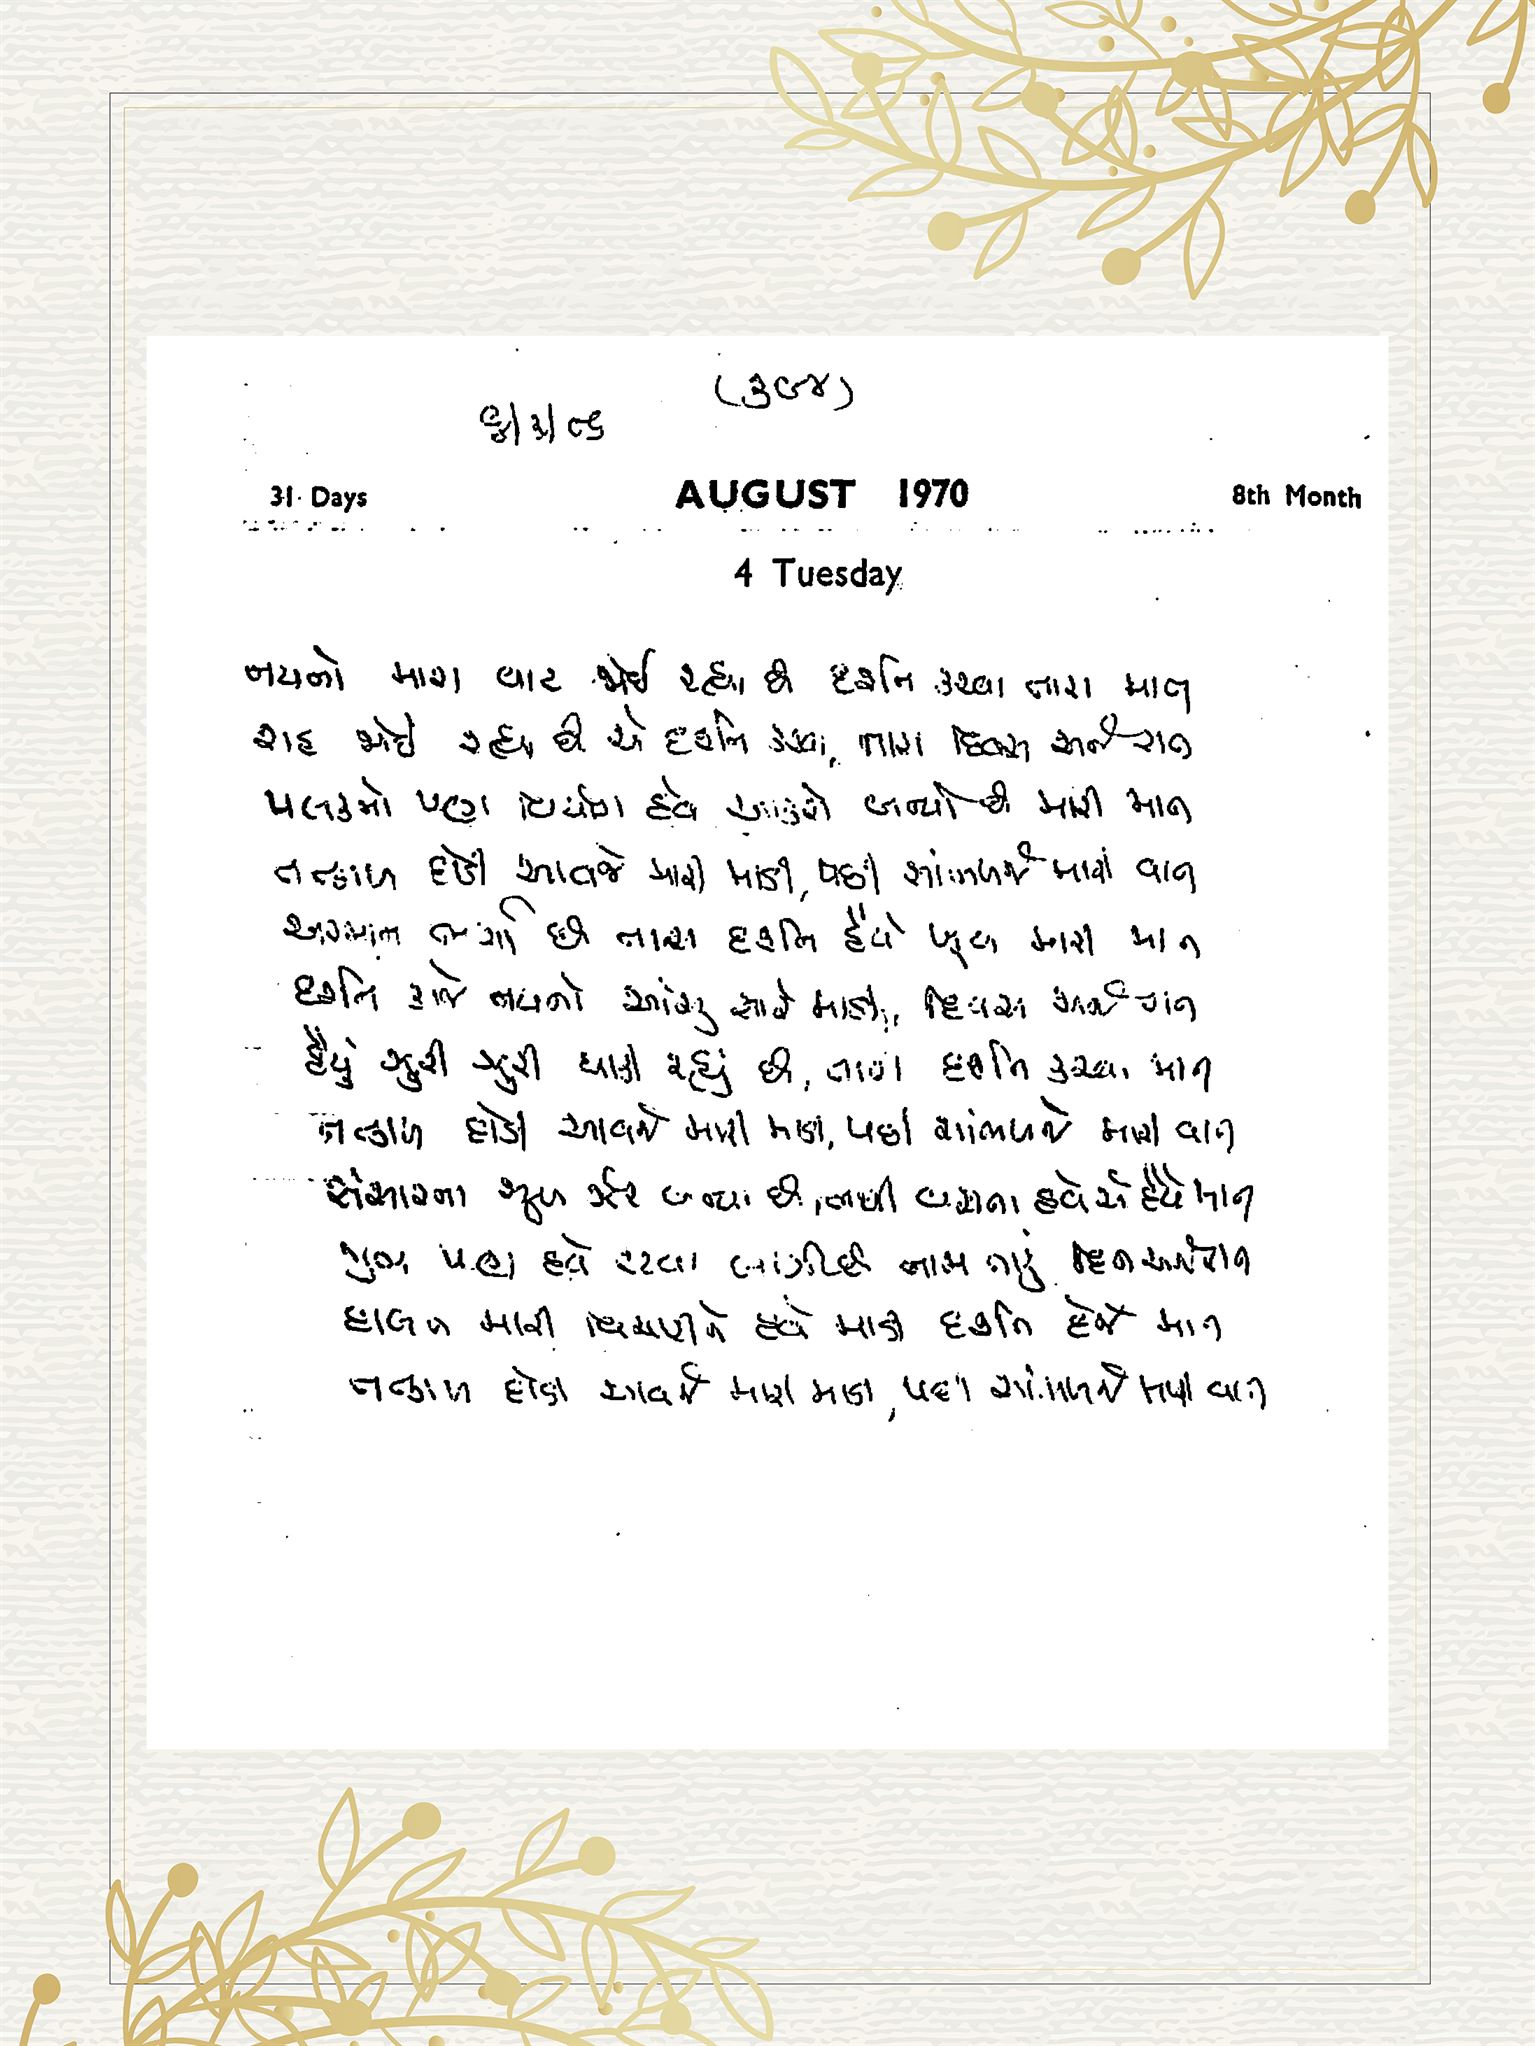 (૩૯૪)
31 Days AUGUST 1970 8th Month
4 Tuesday
નયનો મારા વાટ જોઈ રહ્યા છે દર્શન કરવા તારા માત
રાહ જોઈ રહ્યા છે એ દર્શન કરવા, તારા દિવસ અને રાત
પલકનો પણ વિયોગ હવે આકરો બન્યો છે મારી માત
તત્કાળ દોડી આવજે મારી માડી, પછી સાંભળજે મારી વાત
અરમાન જાગ્યાં છે તારા દર્શન હૈયે ખૂબ મારી માત
દર્શન કાજે નયનો આંસુ સારે માડી, દિવસ અને રાત
હૈયું ઝુરી ઝુરી થાકી રહ્યું છે, તારા દર્શન કરવા માત
તત્કાળ દોડી આવજે મારી માડી, પછી સાંભળજે મારી વાત
સંસારના સુખ ઝેર બન્યા છે, નથી વસતા હવે એ હૈયે માત
મુખ પણ હવે રટવા લાગ્યું છે નામ તારું દિન અને રાત
હાલત મારી વિચારીને હવે માડી દર્શન દેજે માત
તત્કાળ દોડી આવજે મારી માડી, પછી સાંભળજે મારી વાત